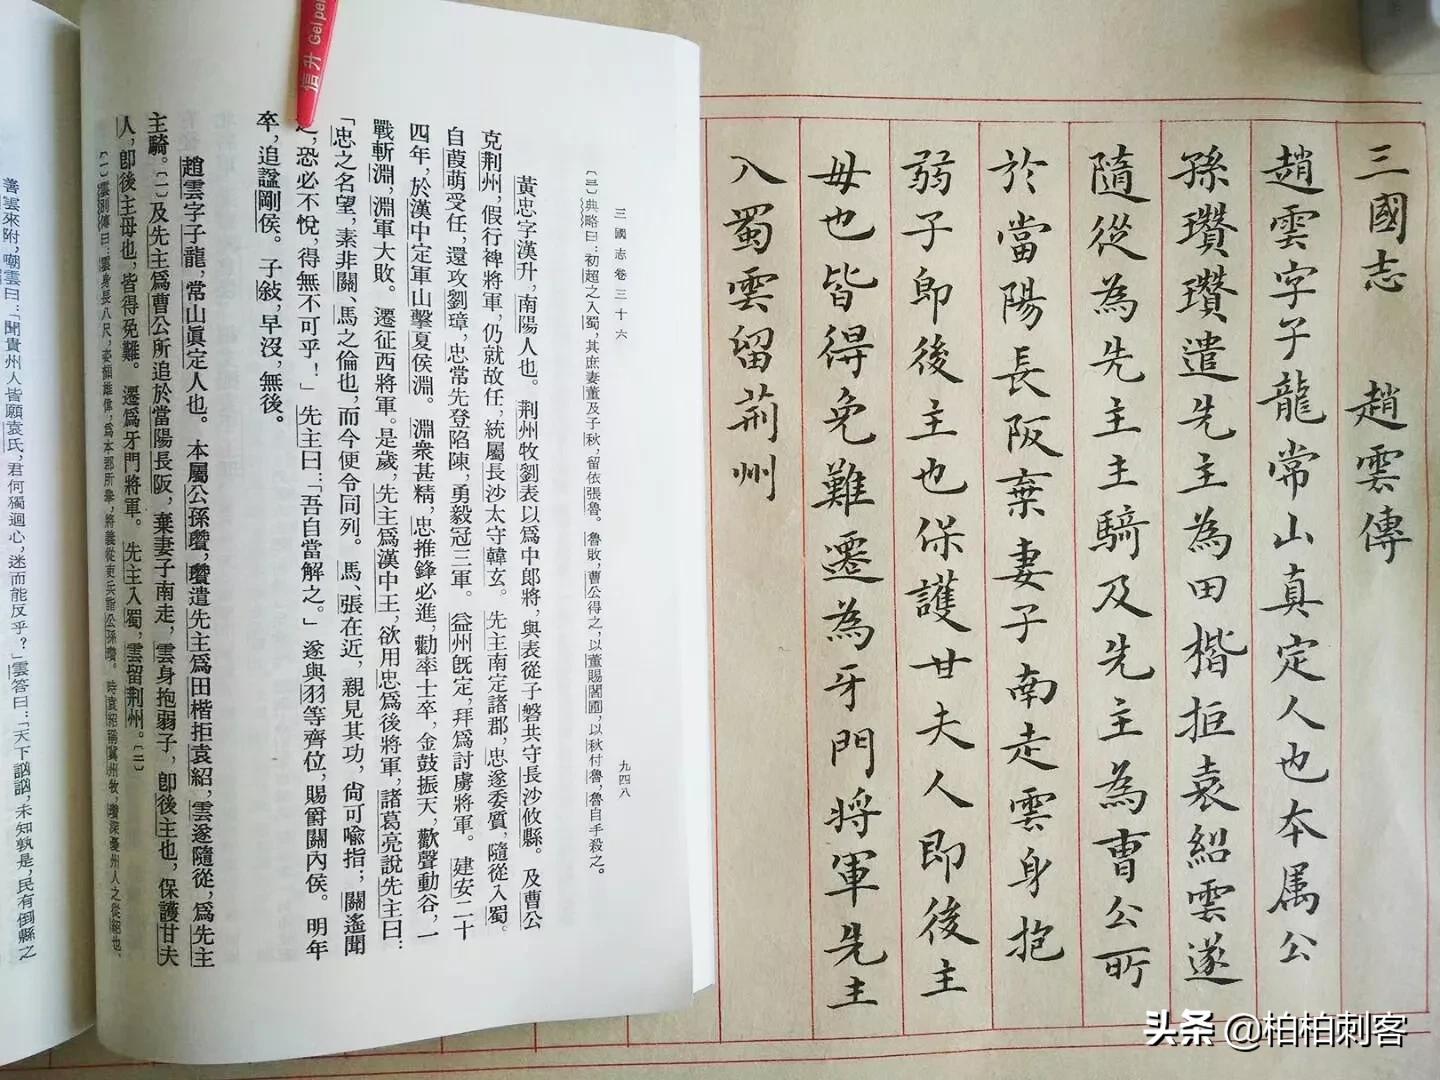 三國志　趙雲傳
趙雲字子龍常山真定人也本属公
孫瓚瓚遣先主為田楷拒袁紹雲遂
隨從為先主主騎及先主為曹公所
於當陽長阪棄妻子南走雲身抱
弱子即後主也保護甘夫人即後主
母也皆得免難遷為牙門將軍先主
入蜀雲留荊州
三國志卷三十六　九四八
〔三〕典略曰：初超之入蜀，其庶妻董及子秋，留依張魯。魯敗，曹公得之，以董賜閻圃，以秋付魯，魯自手殺之。
黃忠字漢升，南陽人也。荊州牧劉表以爲中郎將，與表從子磐共守長沙攸縣。及曹公
克荊州，假行裨將軍，仍就故任，統屬長沙太守韓玄。先主南定諸郡，忠遂委質，隨從入蜀。
自葭萌受任，還攻劉璋，忠常先登陷陳，勇毅冠三軍。益州既定，拜爲討虜將軍。建安二十
四年，於漢中定軍山擊夏侯淵。淵衆甚精，忠推鋒必進，勸率士卒，金鼓振天，歡聲動谷，一
戰斬淵，淵軍大敗。遷征西將軍。是歲，先主爲漢中王，欲用忠爲後將軍，諸葛亮說先主曰：
「忠之名望，素非關、馬之倫也，而今便令同列。馬、張在近，親見其功，尙可喩指；關遙聞
之，恐必不悅，得無不可乎！」先主曰：「吾自當解之。」遂與羽等齊位，賜爵關內侯。明年
卒，追諡剛侯。子敍，早沒，無後。
趙雲字子龍，常山眞定人也。本屬公孫瓚，瓚遣先主爲田楷拒袁紹，雲遂隨從，爲先主
主騎。〔一〕及先主爲曹公所追於當陽長阪，棄妻子南走，雲身抱弱子，卽後主也，保護甘夫
人，卽後主母也，皆得免難。遷爲牙門將軍。先主入蜀，雲留荊州。〔二〕
〔一〕雲別傳曰：雲身長八尺，姿顏雄偉，爲本郡所舉，將義從吏兵詣公孫瓚。時袁紹稱冀州牧，瓚深憂州人之從紹也，
善雲來附，嘲雲曰：「聞貴州人皆願袁氏，君何獨迴心，迷而能反乎？」雲答曰：「天下訩訩，未知孰是，民有倒縣之
信升 Gel pe
头条 @柏柏刺客